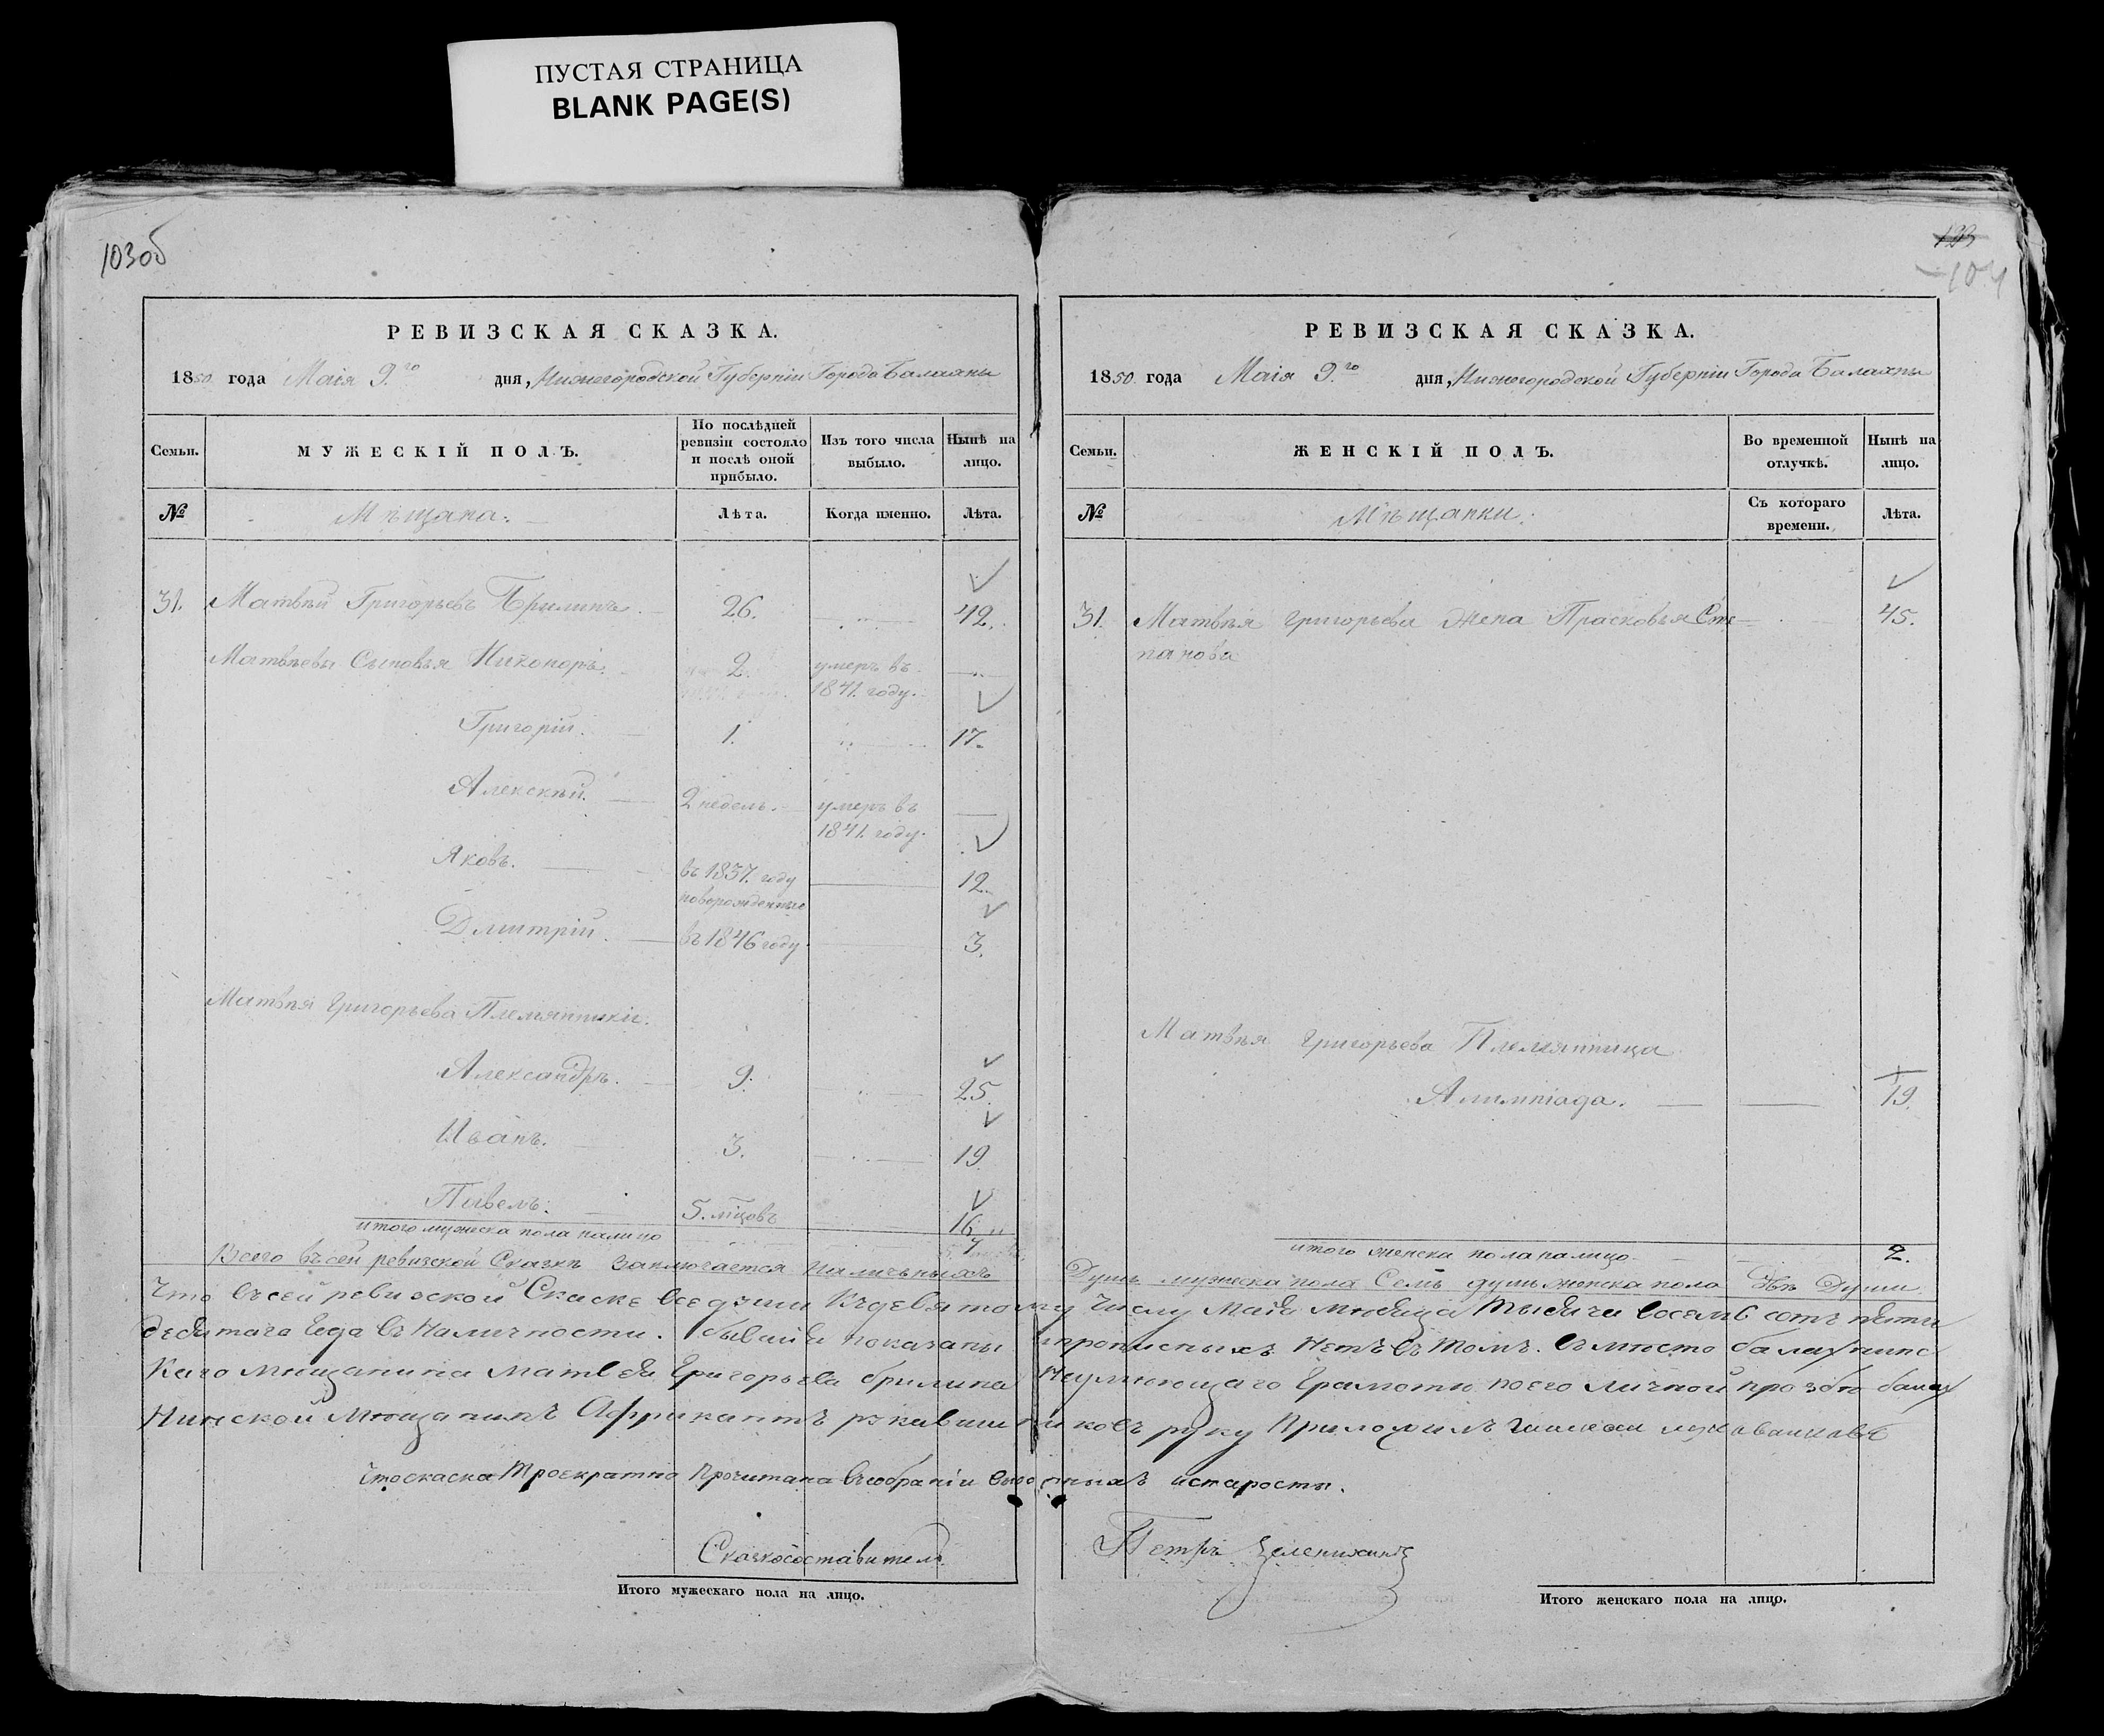 ПУСТАЯ СТРАНИЦА
BLANK PAGE(S)
103об
РЕВИЗСКАЯ СКАЗКА.
1850 года Маія 9.го дня, Нижегородской Губерніи Города Балахны
Семьи.
МУЖЕСКІЙ ПОЛЪ.
По послѣдней
ревизіи состояло
и послѣ оной
прибыло.
Изъ того числа
выбыло.
Нынѣ на
лицо.
№
Мѣщана.
Лѣта.
Когда именно.
Лѣта.
31. Матвѣй Григорьевъ Брилинъ. 26. 42.
Матвѣевы Сыновья Никоноръ. 2. умеръ въ
1841. году.
Григорій. 1. 17.
Алексѣй. 2 недель. умеръ въ
1841. году.
Яковъ. въ 1837. году 12.
новорожденные
Дмитрій. въ 1846 году 3.
Матвѣя Григорьева Племянники.
Александръ. 9. 25.
Иванъ. 3. 19
Павелъ. 5. мѣцовъ 16.
итого мужеска пола налицо 7
Всего въ сей ревизской Сказкѣ заключается наличныхъ
123
104
РЕВИЗСКАЯ СКАЗКА.
1850. года Маія 9.го дня, Нижегородской Губерніи Города Балахны
Семьи.
ЖЕНСКІЙ ПОЛЪ.
Во временной
отлучкѣ.
Нынѣ на
лицо.
№
Мѣщанки.
Съ котораго
времени.
Лѣта.
31. Матвѣя Григорьева Жена Прасковья Сте- 45.
панова
Матвѣя Григорьева Племянница
Алимпіада. 19.
итого женска пола налицо. 2.
Душъ мужеска пола Семь душъ женска пола Двѣ Души.
Что въ сей ревизской Скаске все души къ девятому числу Маія месяца тысяча восемь сотъ пяти
десятаго Года въ Наличности бывшія показаны и прописныхъ нетъ въ томъ вместо балахнинс
каго мещанина Матвея Григорьева брилина неумеющаго Грамоте по его личной прозбе балах
нинской мещанинъ Африкантъ рукавишниковъ руку Приложилъ
Скаска троекратно прочитана въ собраніи выборныхъ и старосты.
Сказкосоставитель Петръ
Итого мужескаго пола на лицо.
Итого женскаго пола на лицо.